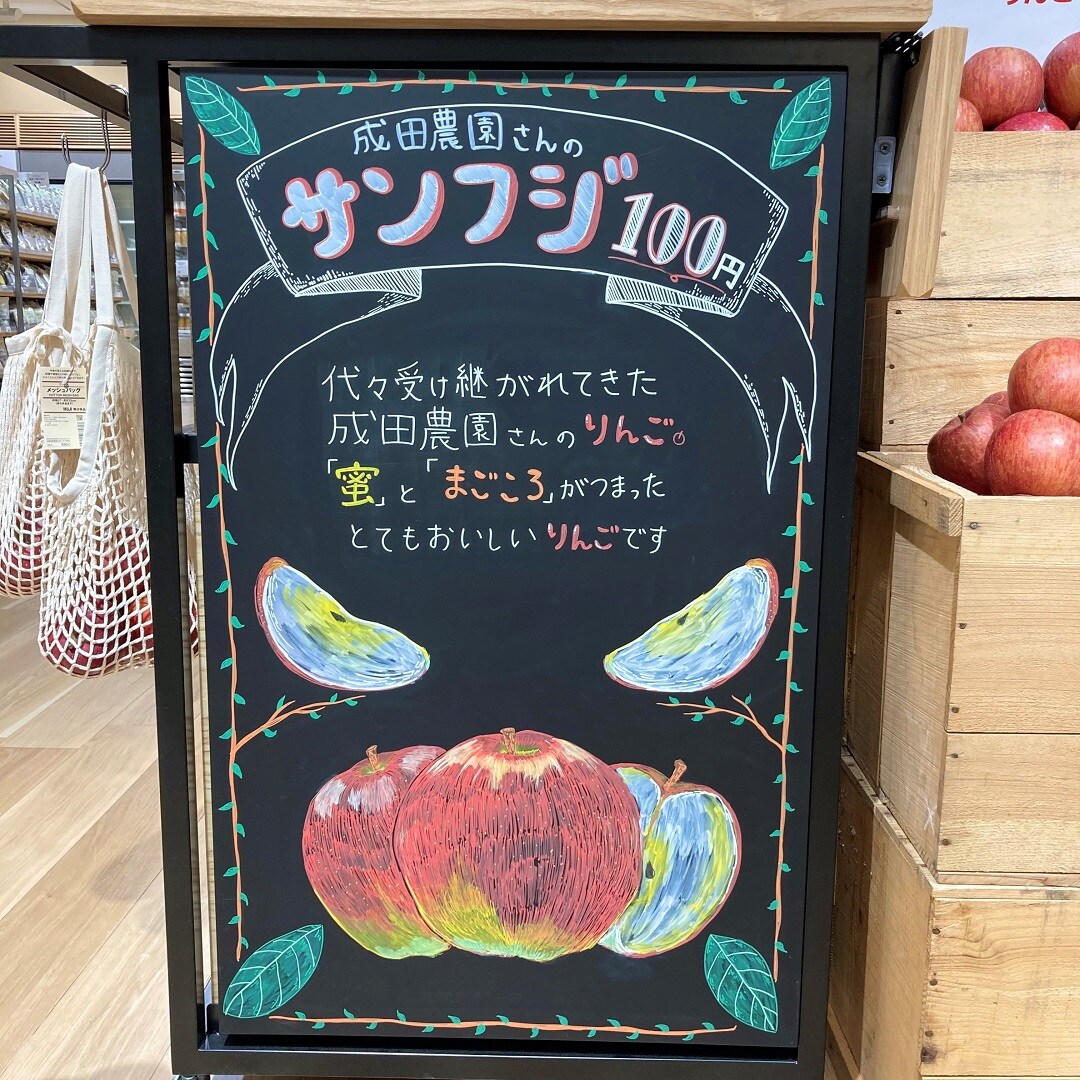 成田農園さんの
サンフジ100円
代々受け継がれてきた
成田農園さんのりんご。
「蜜」と「まごころ」がつまった
とてもおいしいりんごです
メッシュバッグ
MUJI 無印良品